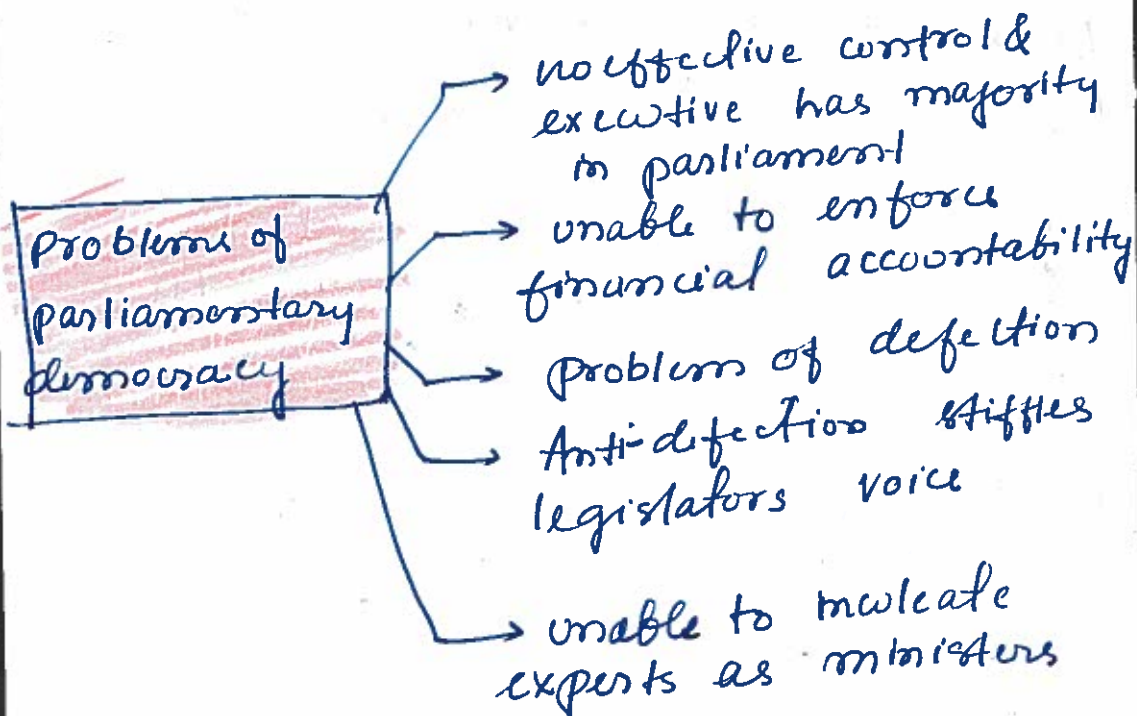 problems of
parliamentary
democracy
no effective control &
executive has majority
in parliament
unable to enforce
financial accountability
problem of defection
Anti-defection stiffles
legislators voice
unable to inculcate
experts as ministers